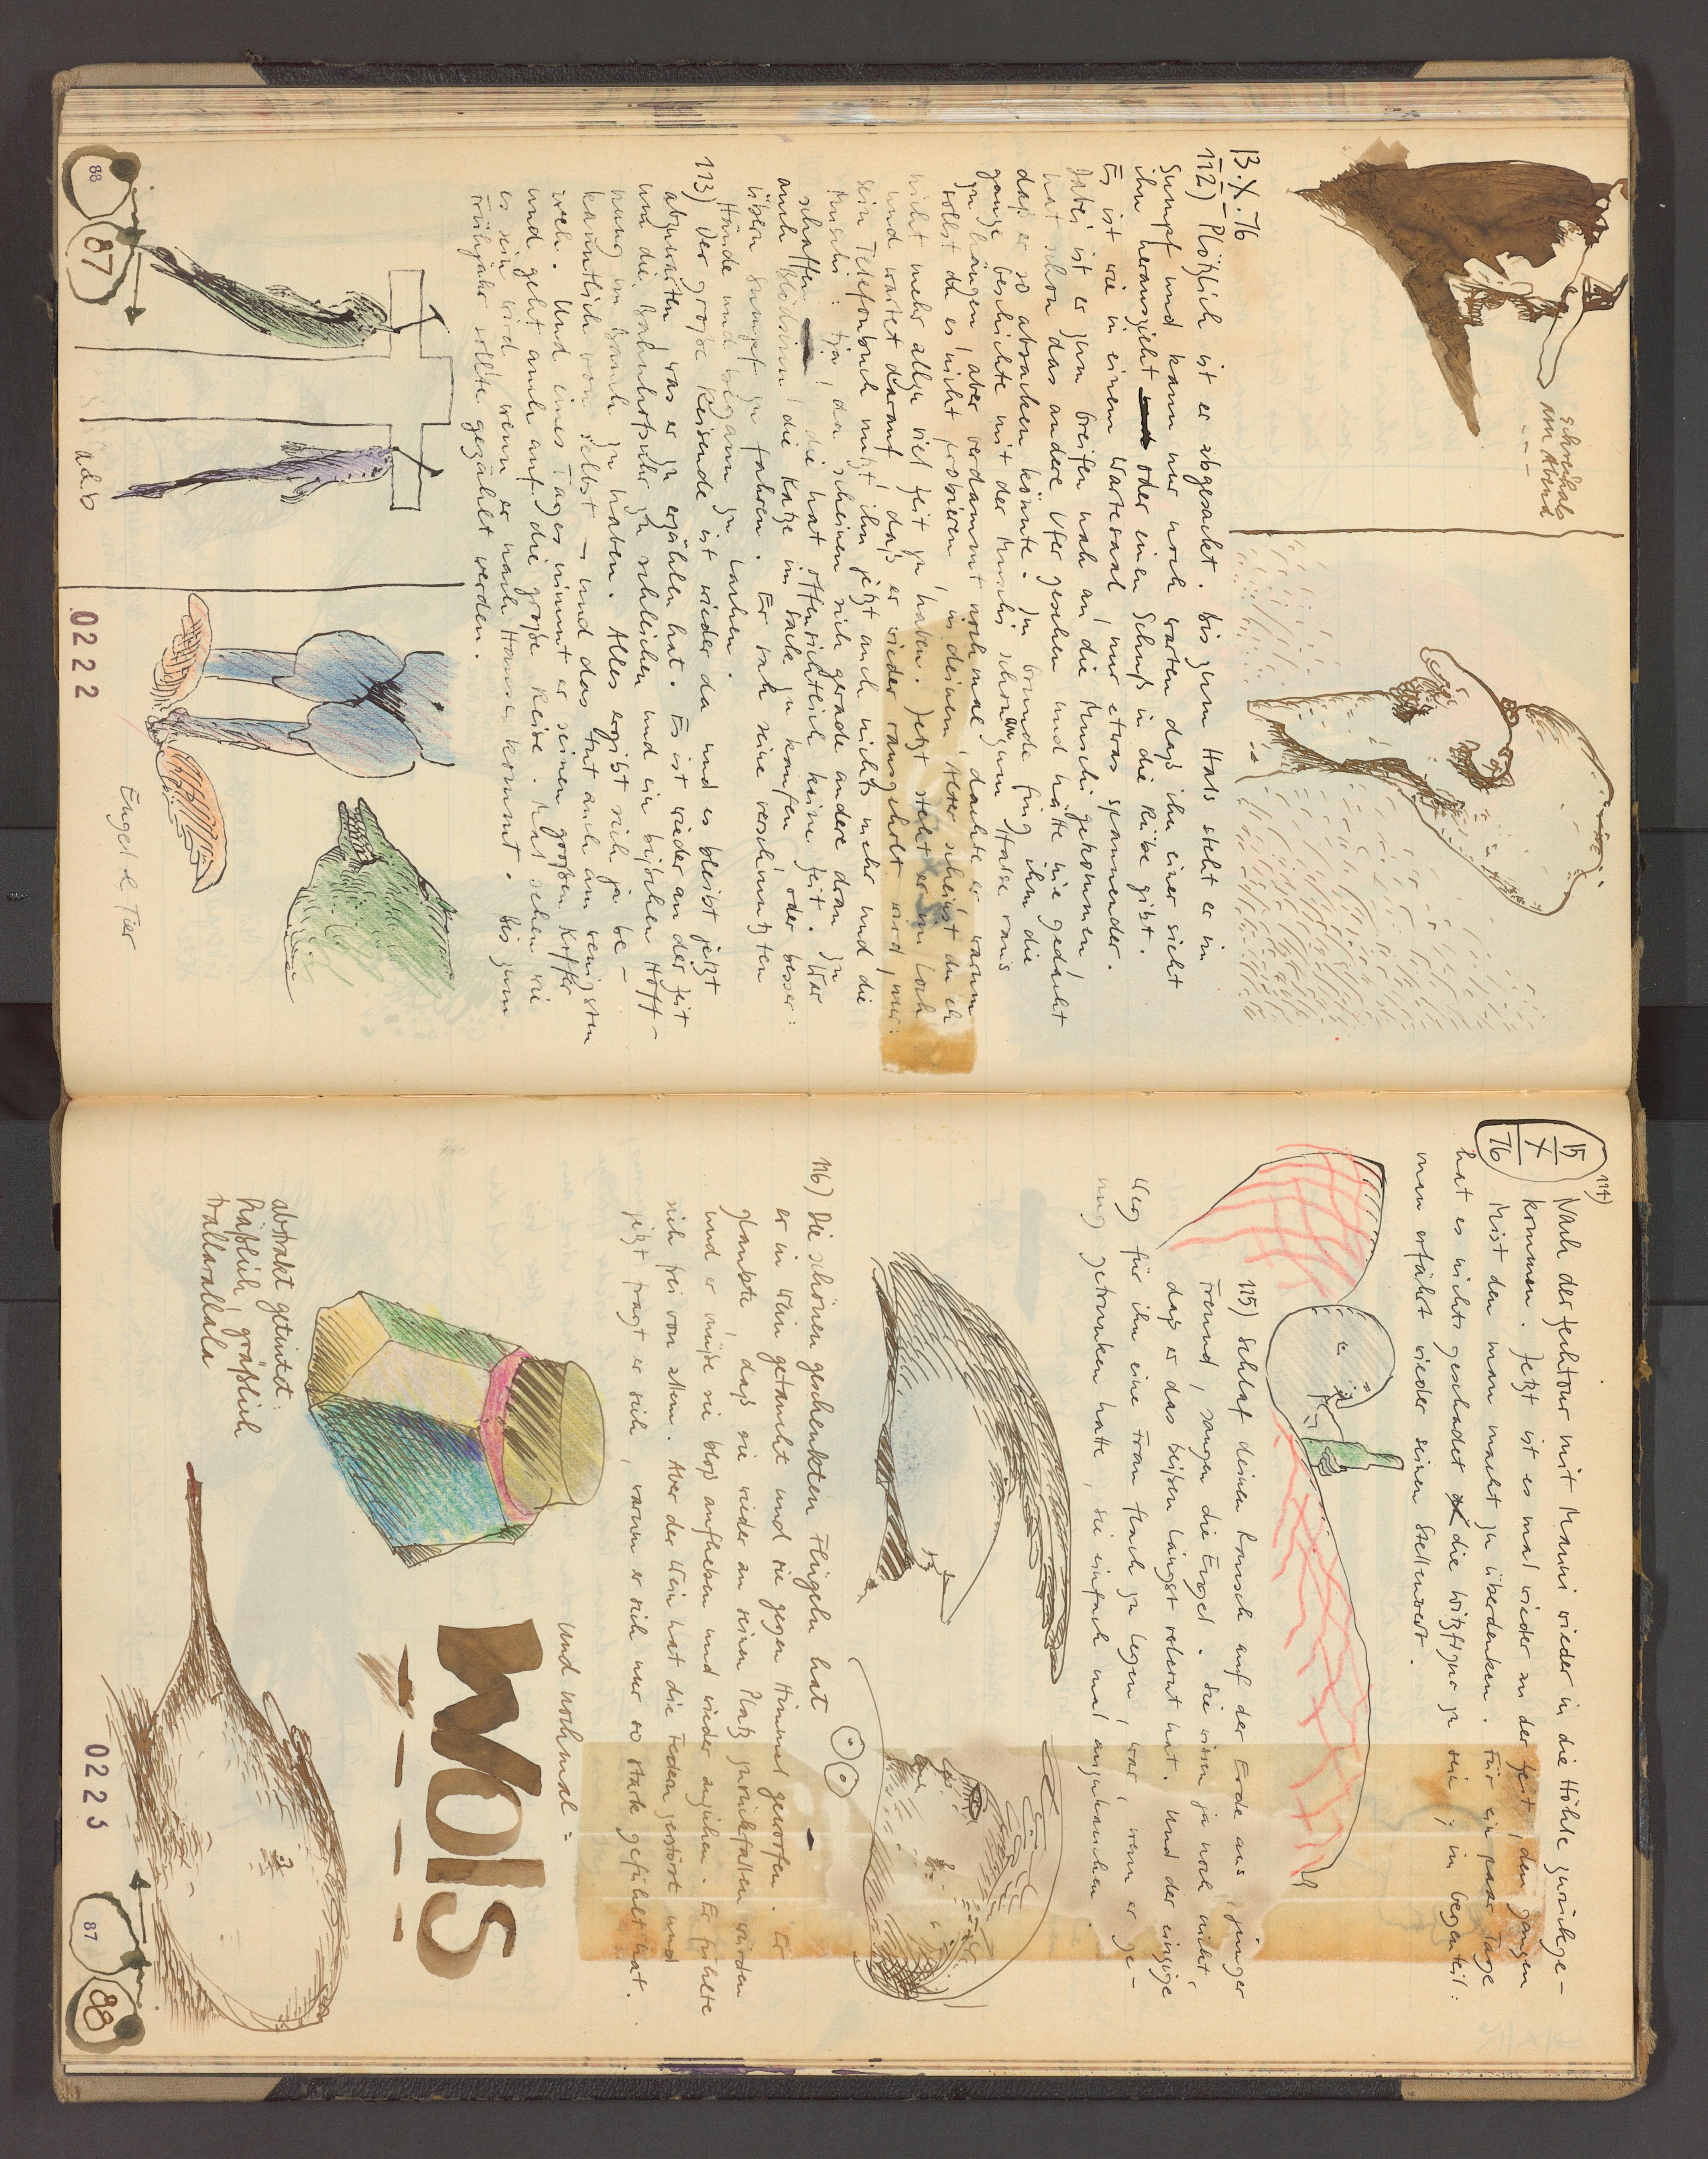 Schreihals
am Abend
13.X.76
112) Plötzlich ist er abgesackt. bis zum Hals steht er im
Sumpf und kann nur noch warten daß ihn einer sieht
ihn herauszieht oder einen Schuß in die Rübe gibt.
Es ist wie in einem Wartesaal, nur etwas spannender.
Dabei ist er zum Greifen nah an die Muschi gekommen,
hat schon das andere Ufer gesehen und hätte nie gedacht
daß er so absacken könnte. Im Grunde fing ihm die
ganze Geschichte mit der Muschi schon an zum Halse raus
zu hängen, aber verdammt nochmal, dachte er, warum
sollst du es nicht probieren, in deinem Alter scheinst du eh
nicht mehr allzu viel Zeit zu haben. Jetzt steht er im Loch
und wartet darauf, daß er wieder rausgeholt wird, nur:
sein Telefonbuch nützt ihm jetzt auch nichts mehr und die
Muschi: tja! da scheinen sich gerade andere dran zu
schaffen die hat offensichtlich keine Zeit. War
auch Blödsinn, die Katze im Sack zu kaufen oder besser:
übern Sumpf zu fahren. Er sah seine verschmutzten
Hände und begann zu lachen.
113) Der große Reisende ist wieder da und es bleibt jetzt
abzuwarten, was er zu erzählen hat. Es ist wieder an der Zeit
um die Bahnhofsuhr zu schleichen und ein bißchen Hoff-
nung im Bauch zu haben. Alles ergibt sich ja be-
kanntlich von selbst – und das tut auch am wenigsten
weh. Und eines Tages nimmt er seinen großen Koffer
und geht auch auf die große Reise. Mal sehen wie
es sein wird, wenn er nach Hause kommt. Bis zum
Frühjahr sollte gezählt werden.
a.d.b
Engel & Tier
88
87
0222
15
X
76
114) Nach der Zechtour mit Manni wieder in die Höhle zurückge-
kommen. Jetzt ist es mal wieder an der Zeit, den ganzen
Mist den man macht zu überdenken. Für ein paar Tage
hat es nichts geschadet die Witzfigur zu sein; im Gegenteil:
man erfährt wieder seinen Stellenwert.
115) Schlaf deinen Rausch auf der Erde aus, junger
Freund, sangen die Engel. Sie wissen ja noch nicht,
daß er das beißen längst verlernt hat. Und der einzige
Weg für ihn eine Frau flach zu legen, war, wenn er ge-
nug getrunken hatte, sie einfach mal anzuhauchen.
116) Die schönen geschenkten Flügeln hat
er in Wein getaucht und sie gegen Himmel geworfen. Er
glaubte, daß sie wieder an seinen Platz zurückfallen würden
und er müßte sie bloß aufheben und wieder anziehen. Er fühlte
sich frei von allem. Aber der Wein hat die Federn zerstört und
jetzt fragt er sich, warum er sich nur so stark gefühlt hat.
Und nochmal:
WOIS
abstrakt getintet:
häßlich, gräßlich
trallarallala
0223
87
88